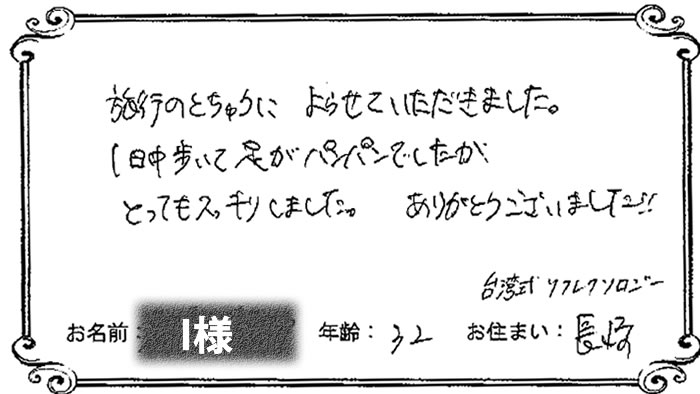 旅行のとちゅうに よらせていただきました。
1日中歩いて足がパンパンでしたが、
とってもスッキリしました。 ありがとうございました!!
台湾式リフレクソロジー
お名前： I様 年齢： 32 お住まい： 長崎